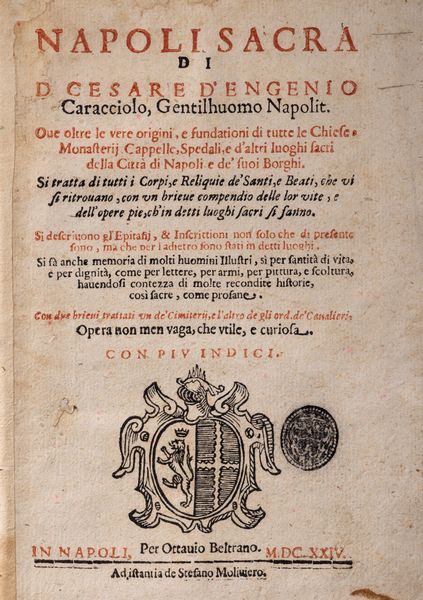 NAPOLI SACRA
DI
D. CESARE D'ENGENIO
Caracciolo, Gentilhuomo Napolit.
Oue oltre le vere origini, e fundationi di tutte le Chiese,
Monasterij, Cappelle, Spedali, e d'altri luoghi sacri
della Città di Napoli, e de' suoi Borghi.
Si tratta di tutti i Corpi, e Reliquie de' Santi, e Beati, che vi
si ritrouano, con vn brieue compendio delle lor vite, e
dell'opere pie, ch'in detti luoghi sacri si fanno.
Si descriuono gl'Epitafij, & Inscrittioni non solo che di presente
sono, ma che per l'adietro sono stati in detti luoghi.
Si fà anche memoria di molti huomini Illustri, sì per santità di vita,
e per dignità, come per lettere, per armi, per pittura, e scoltura,
hauendosi contezza di molte recondite historie,
così sacre, come profane.
Con due brieui trattati vn de' Cimiterij, e l'altro de gli ord. de' Caualieri,
Opera non men vaga, che vtile, e curiosa.
CON PIV INDICI.
IN NAPOLI, Per Ottauio Beltrano. M.DC.XXIV.
Ad istantia de Stefano Moliuiero.